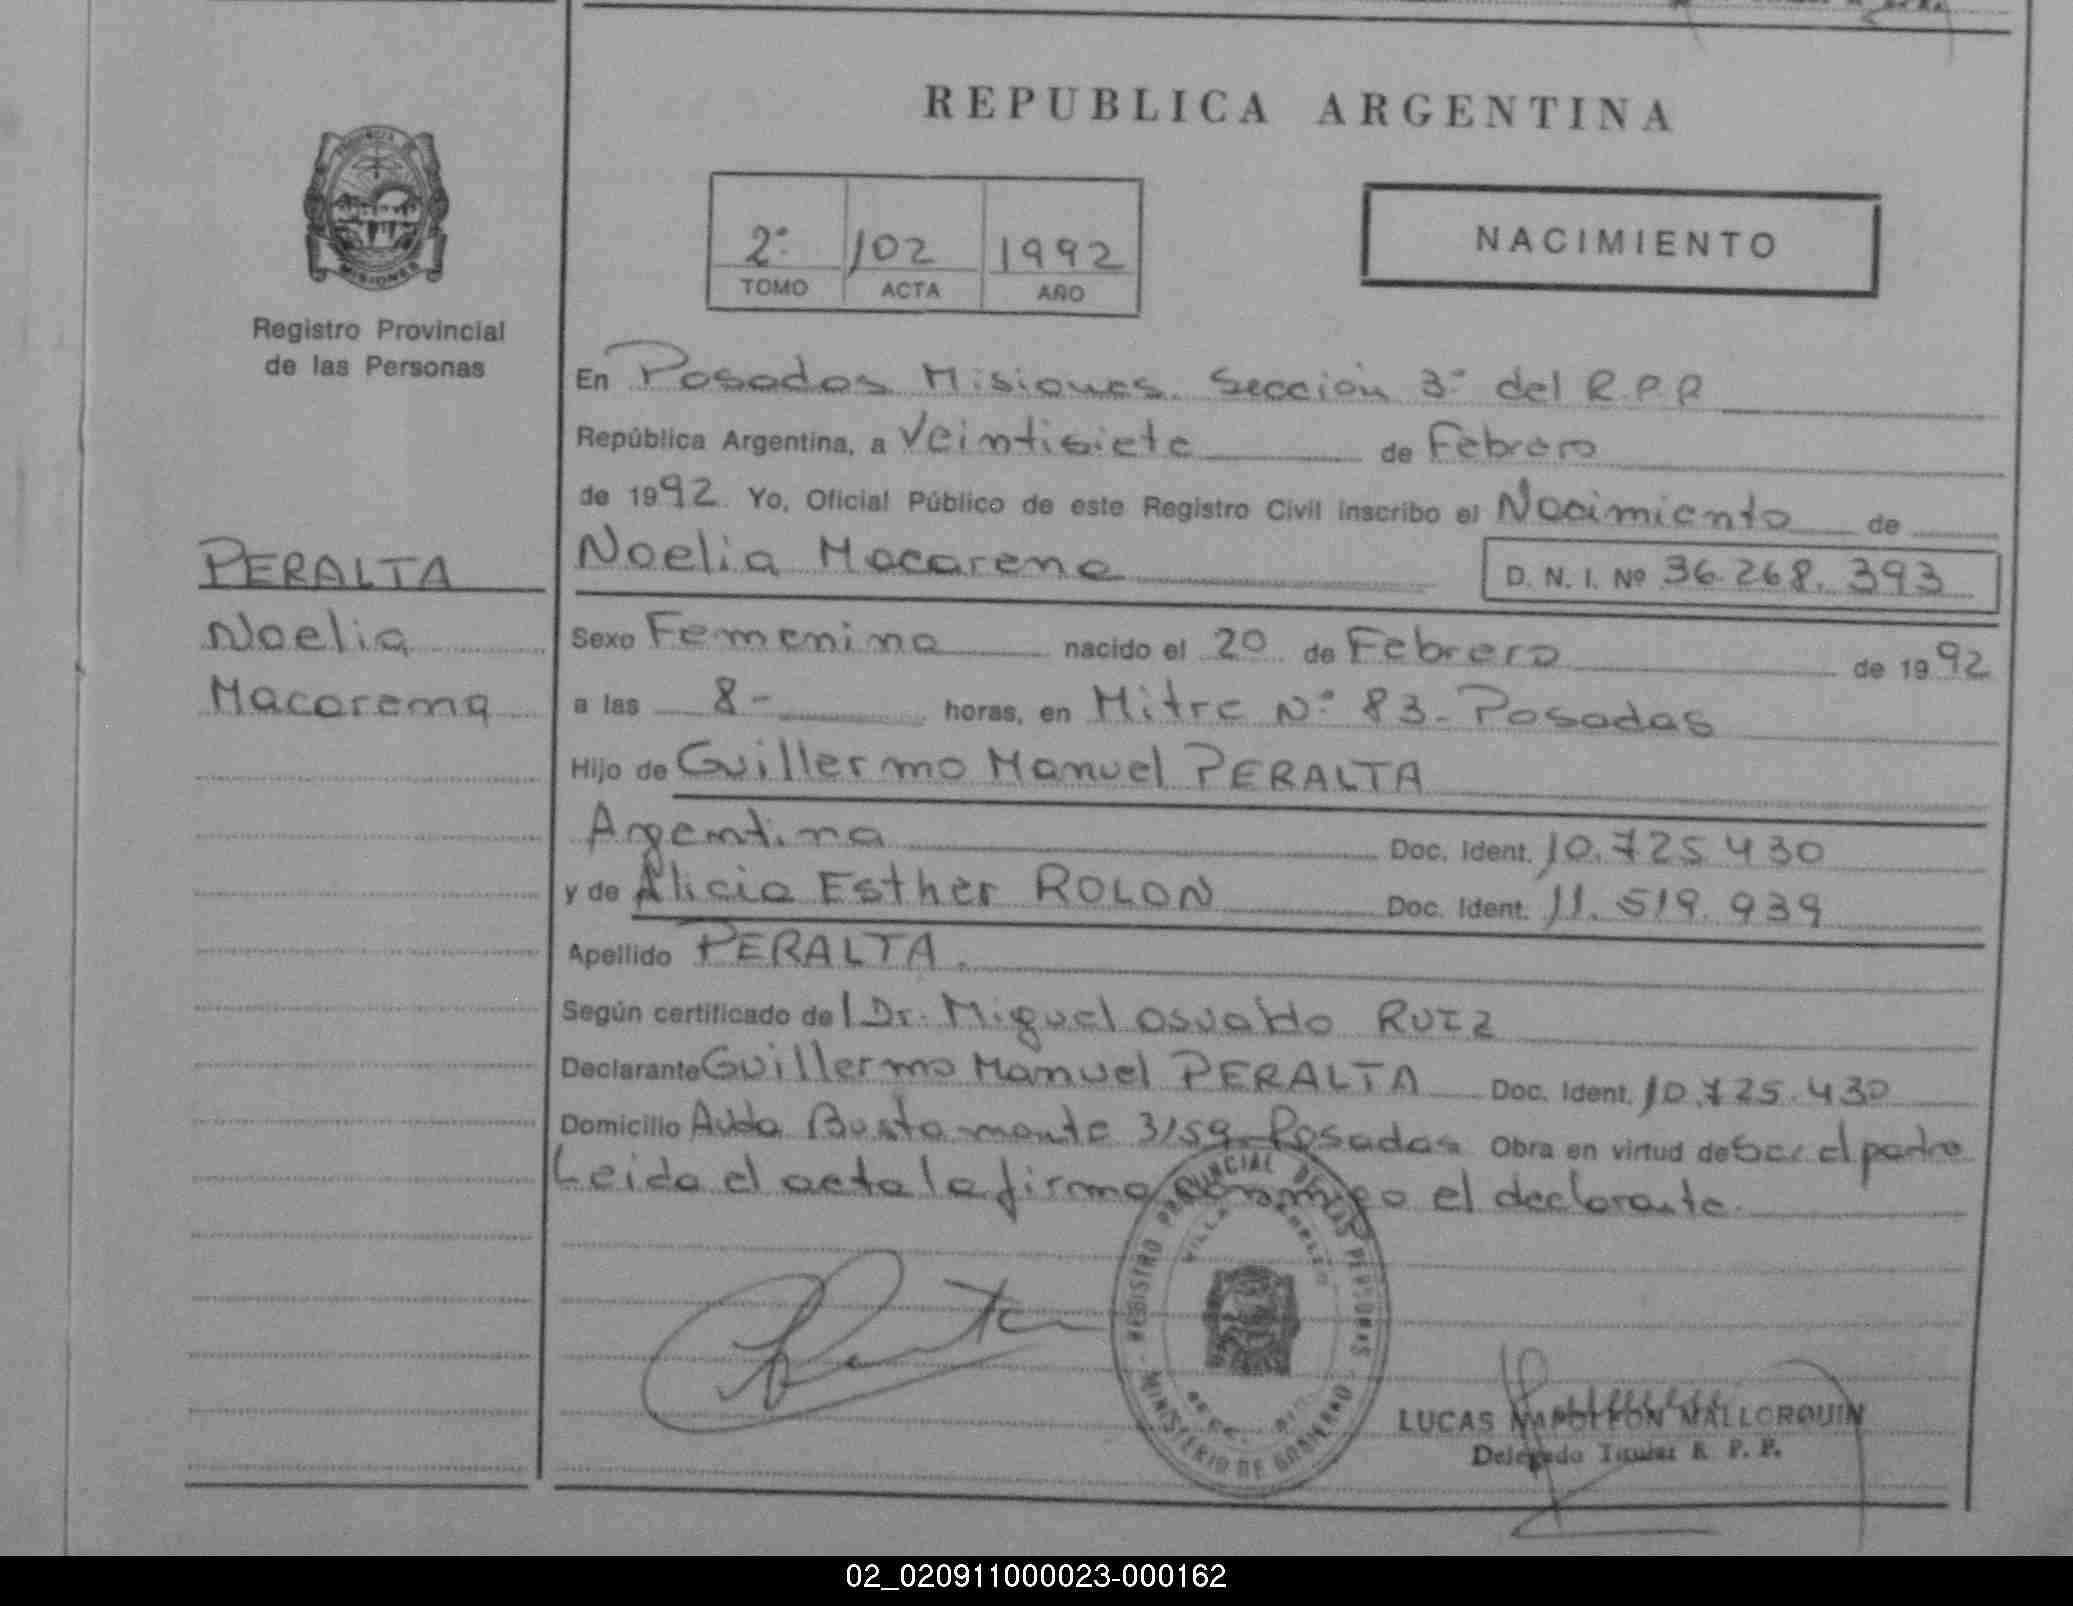 REPUBLICA ARGENTINA
2º 102 1992
TOMO ACTA AÑO
NACIMIENTO
MISIONES
Registro Provincial
de las Personas
PERALTA
Noelia
Macarena
En Posadas Misiones. Sección 3º del R.P.P
República Argentina, a Veintisiete de Febrero
de 1992. Yo, Oficial Público de este Registro Civil inscribo el Nacimiento de
Noelia Macarena D. N. I. Nº 36.268.393
Sexo Femenina nacido el 20 de Febrero de 1992
a las 8- horas, en Mitre Nº 83- Posadas
Hijo de Guillermo Manuel PERALTA
Argentina Doc. Ident. 10.725.430
y de Alicia Esther ROLON Doc. Ident. 11.519.939
Apellido PERALTA.
Según certificado del Dr. Miguel Osvaldo RUIZ
Declarante Guillermo Manuel PERALTA Doc. Ident. 10.725.430
Domicilio Avda Bustamante 3159-Posadas Obra en virtud de Ser el padre
Leida el acta la firma conmigo el declarante.
REGISTRO PROVINCIAL DE LAS PERSONAS
VILLA
MINISTERIO DE GOBIERNO
LUCAS NAPOLEON MALLORQUIN
Delegado Titular R. P. P.
02_020911000023-000162